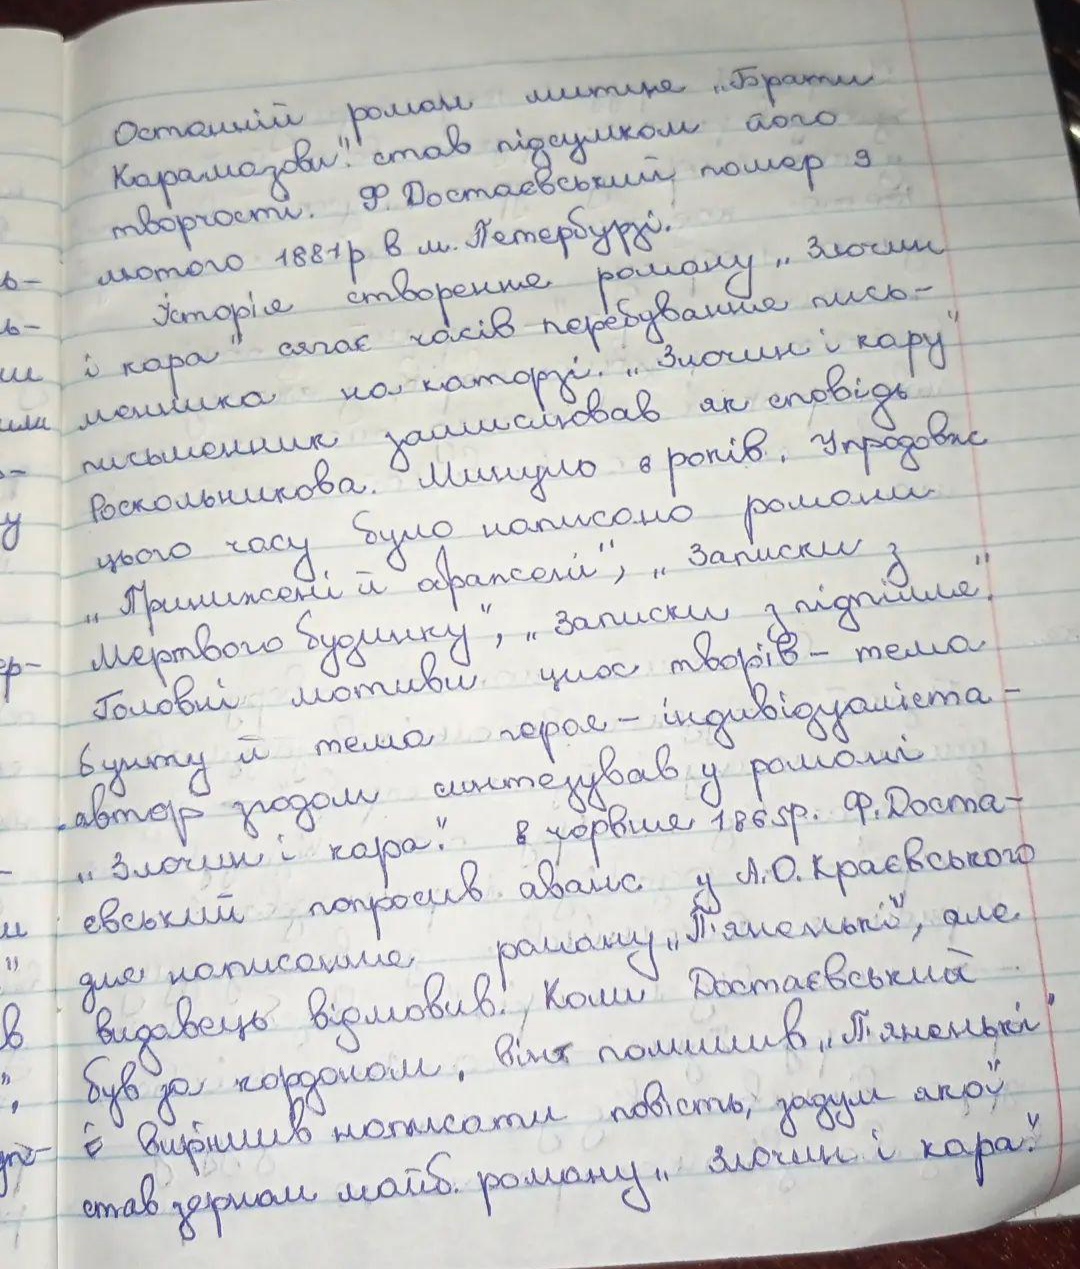 Останній роман митця „Брати
Карамазови". став підсумком його
творчості. Ф. Достаєвський помер 9
лютого 1881р в м. Петербурзі.
Історія створення роману „Злочин
і кара" сягає часів перебування пись-
менника на каторзі. „Злочин і кару"
письменник замислював як сповідь
Роскольникова. Минуло 8 років. Упродовж
цього часу було написано романи
„Принижені й ображені", „Записки з
Мертвого будинку", „Записки з підпілля".
Головні мотиви цих творів – тема
бунту й тема героя – індивідуаліста –
автор згодом синтезував у романі
„Злочин і кара". в червні 1865р. Ф. Доста-
євський попросив аванс у А.О. Краєвського
для написання роману „П'яненькі", але
видавець відмовив. Коли Достаєвський
був за кордоном, він полишив „П'яненькі"
і вирішив написати повість, задум якої
став зерном майб. роману „Злочин і кара".